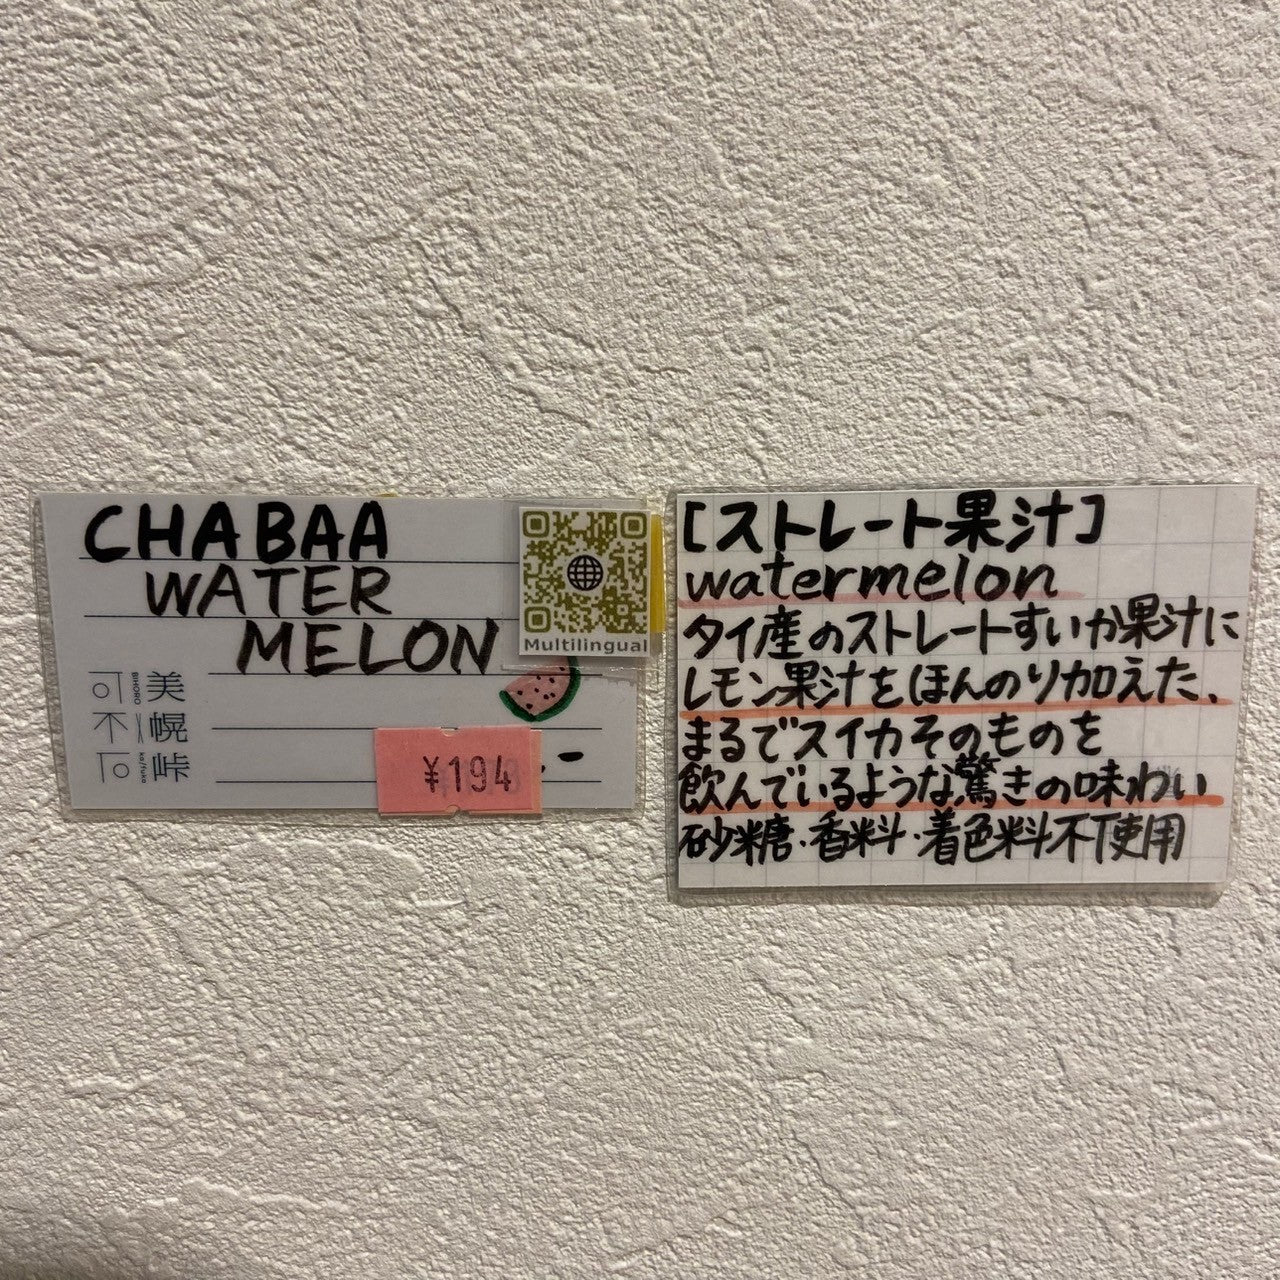 CHABAA
WATER
MELON
Multilingual
美幌峠
BIHORO
可不可
¥194
[ストレート果汁]
watermelon
タイ産のストレートすいか果汁に
レモン果汁をほんのり加えた、
まるでスイカそのものを
飲んでいるような驚きの味わい
砂糖・香料・着色料不使用